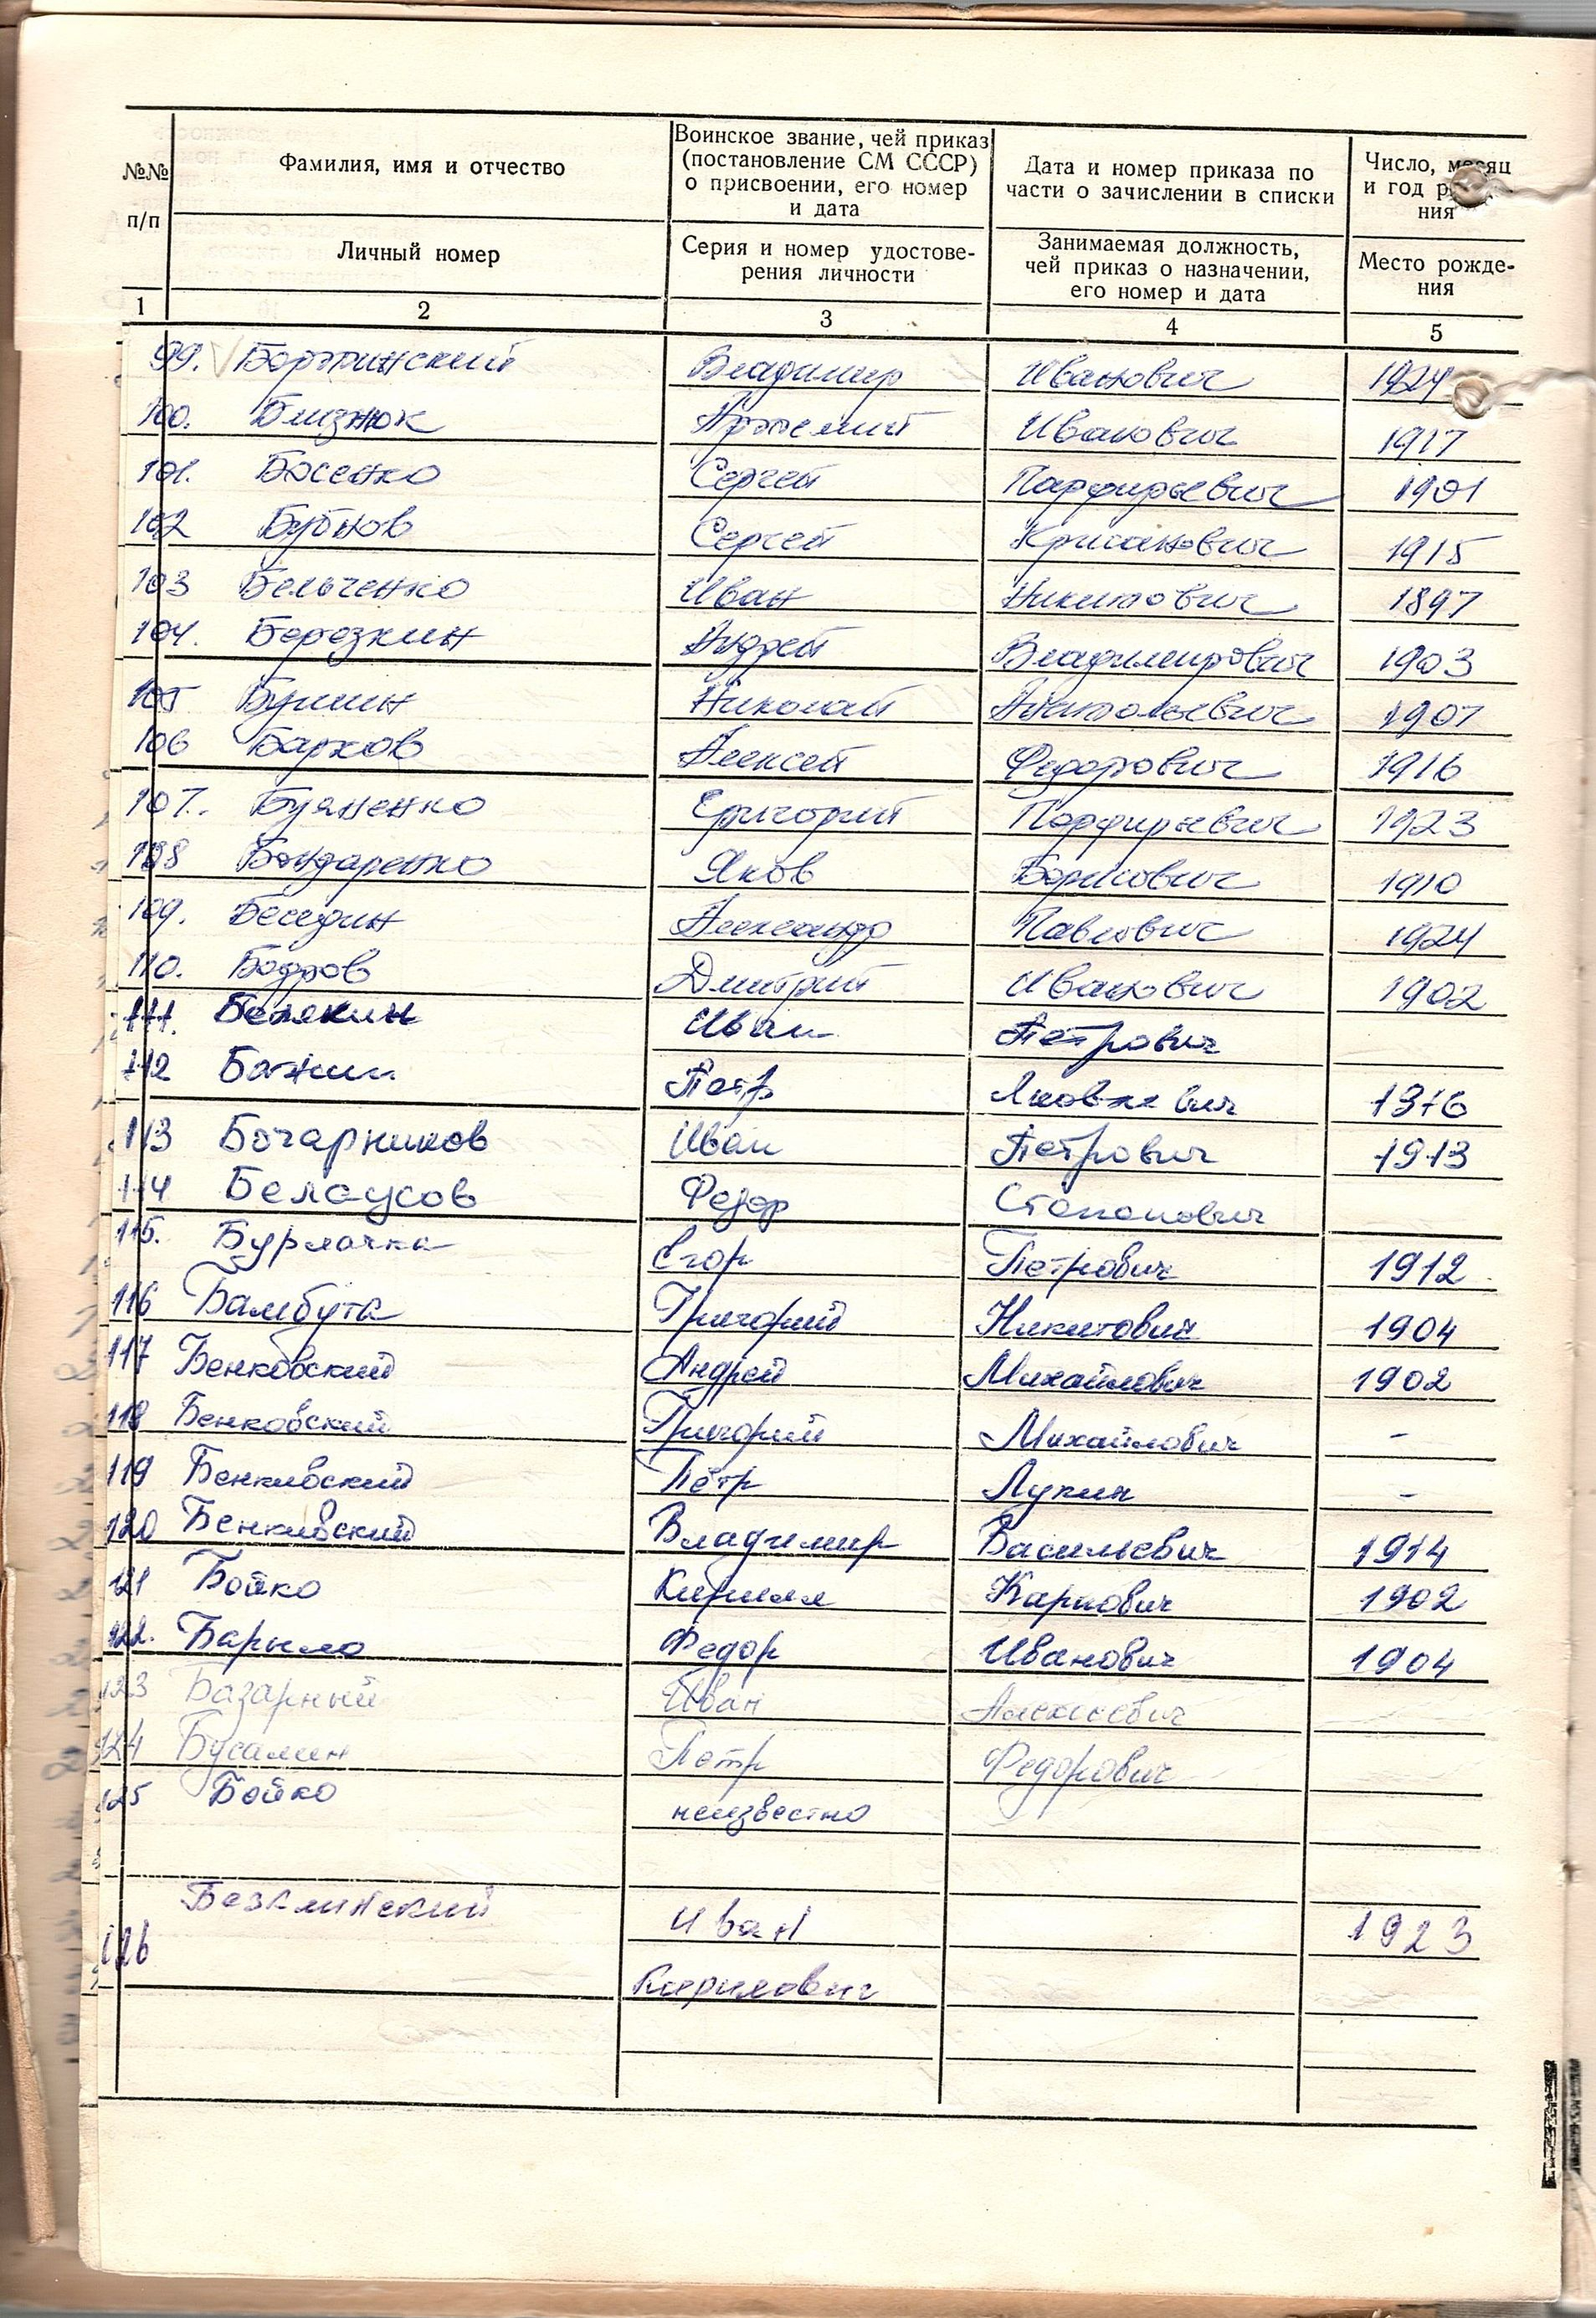 №№ п/п
Фамилия, имя и отчество
Воинское звание, чей приказ
(постановление СМ СССР)
о присвоении, его номер
и дата
Дата и номер приказа по
части о зачислении в списки
Число, месяц
и год
ния
Личный номер
Серия и номер удостове-
рения личности
Занимаемая должность,
чей приказ о назначении,
его номер и дата
Место рожде-
ния
1 2 3 4 5
99. Владимир Иванович 1924
100. Близнюк Артемий Иванович 1917
101. Босенко Сергей Парфирьевич 1901
102 Бубнов Сергей 1915
103 Бельченко Иван Никитович 1897
104. Березкин Андрей Владимирович 1903
105 Николай Анатольевич 1907
106 Барков Алексей Федорович 1916
107. Буяненко Григорий Порфирьевич 1923
108 Бондаренко Яков Борисович 1910
109. Беседин Александр Павлович 1924
110. Бодров Дмитрий Иванович 1902
111. Белякин Иван Петрович
112 Бажин Петр Яковлевич
113 Бочарников Иван Петрович 1913
114 Белаусов Федор Степанович
115. Бурлачка Егор Петрович 1912
116 Бамбута Григорий Никитович 1904
117 Бенковский Андрей Михайлович 1902
118 Бенковский Григорий Михайлович -
119 Бенковский Пётр Лукич -
120 Бенковский Владимир Васильевич 1914
121 Бойко Кирилл Карпович 1902
122. Барыло Федор Иванович 1904
123 Базарный Иван Алексеевич
124 Бусалин Петр Федорович
125 Бойко неизвестно
Безклинский
126 Иван 1923
Карилович